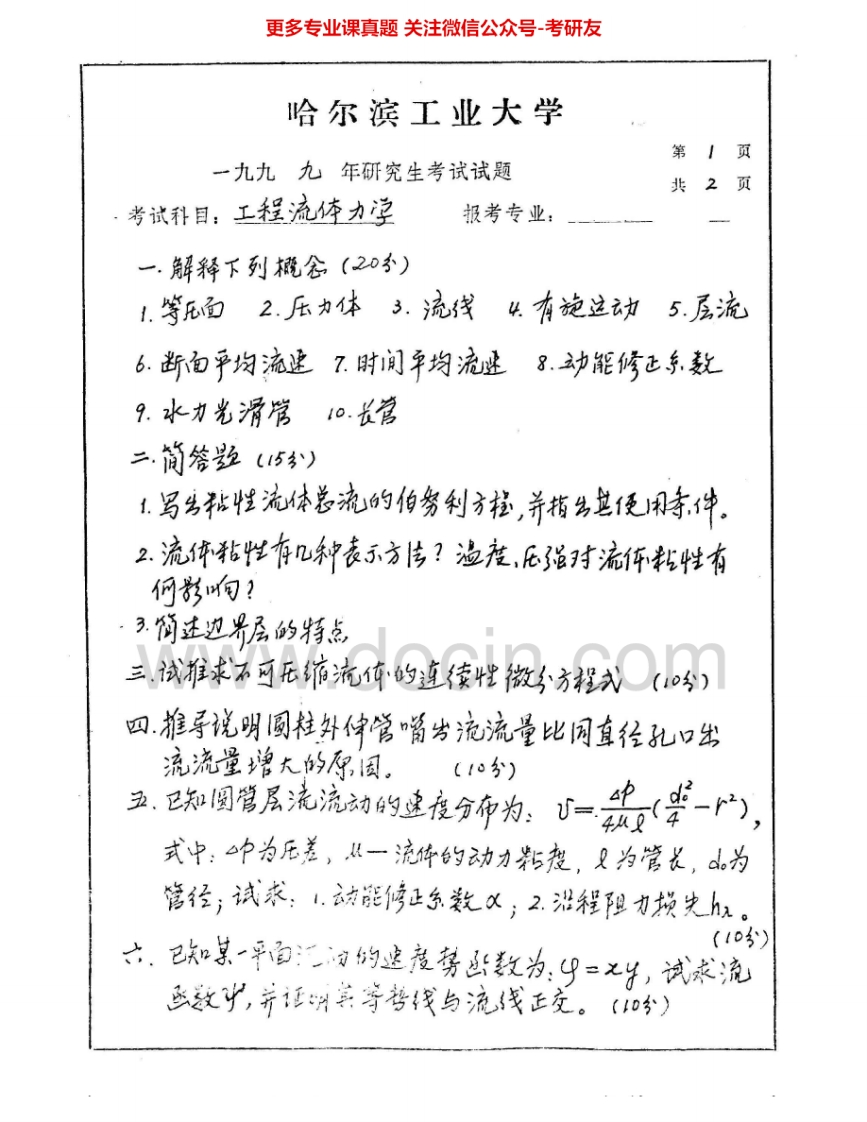 更多专业课真题 关注微信公众号-考研友
哈尔滨工业大学
一九九 九 年研究生考试试题
第 1 页
共 2 页
考试科目：工程流体力学 报考专业：
一.解释下列概念（20分）
1.等压面 2.压力体 3.流线 4.有旋运动 5.层流
6.断面平均流速 7.时间平均流速 8.动能修正系数
9.水力光滑管 10.长管
二.简答题（15分）
1.写出粘性流体总流的伯努利方程,并指出其使用条件。
2.流体粘性有几种表示方法？温度、压强对流体粘性有
何影响？
3.简述边界层的特点
www.docin.com
三.试推求不可压缩流体的连续性微分方程式（10分）
四.推导说明圆柱外伸管嘴出流流量比同直径孔口出
流流量增大的原因。（10分）
五.已知圆管层流流动的速度分布为：υ=Δp/4μℓ(d₀²/4-r²),
式中：Δp为压差，μ—流体的动力粘度，ℓ为管长，d₀为
管径；试求：1.动能修正系数α；2.沿程阻力损失hλ。
（10分）
六.已知某一平面流动的速度势函数为：φ=xy，试求流
函数ψ,并证明其等势线与流线正交。（10分）